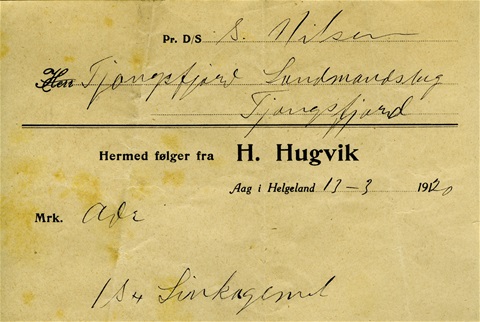 Pr. D/S S. Nilsen
Herr Tjongsfjord Landmandslag
Tjongsfjord
Hermed følger fra H. Hugvik
Aag i Helgeland 13-3 1920
Mrk. Ade
1 Sk